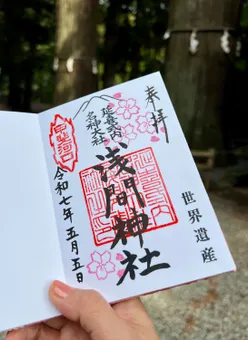 奉拝
延喜式内
名神大社
浅間神社
世界遺産
令和七年五月五日